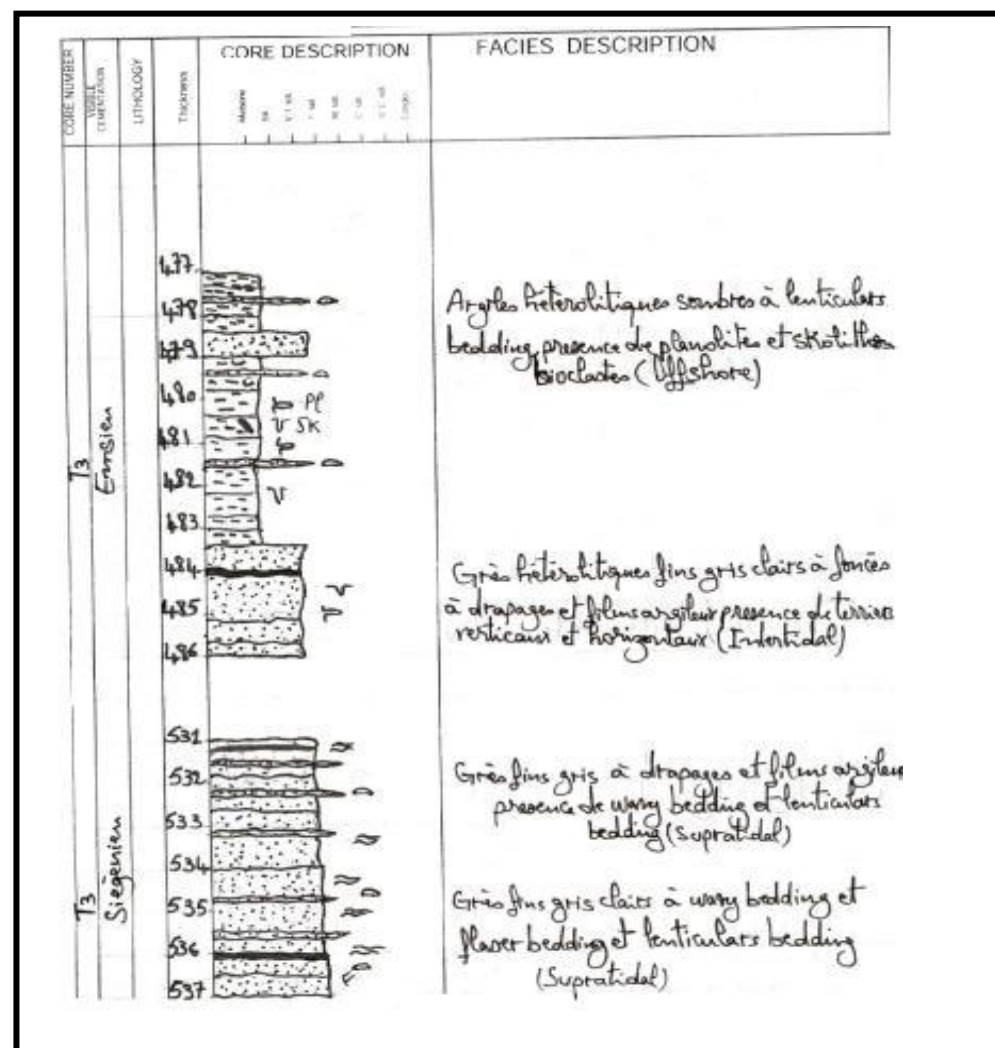 CORE NUMBER
VISIBLE CEMENTATION
LITHOLOGY
Thickness
CORE DESCRIPTION
FACIES DESCRIPTION
T3
Emsien
477
478
479
480
481
482
483
484
485
486
Pl
SK
Argiles héterolitiques sombres à lenticulars
bedding presence de planolites et skolithos
bioclastes (Offshore)
Grès hétérolitiques fins gris clairs à foncés
à drapages et films argileux presence de terriers
verticaux et horizontaux (Intertidal)
T3
Siégénien
531
532
533
534
535
536
537
F
Grès fins gris à drapages et films argileux
presence de wavy bedding et lenticulars
bedding (Supratidal)
Grès fins gris clairs à wavy bedding et
flaser bedding et lenticulars bedding
(Supratidal)